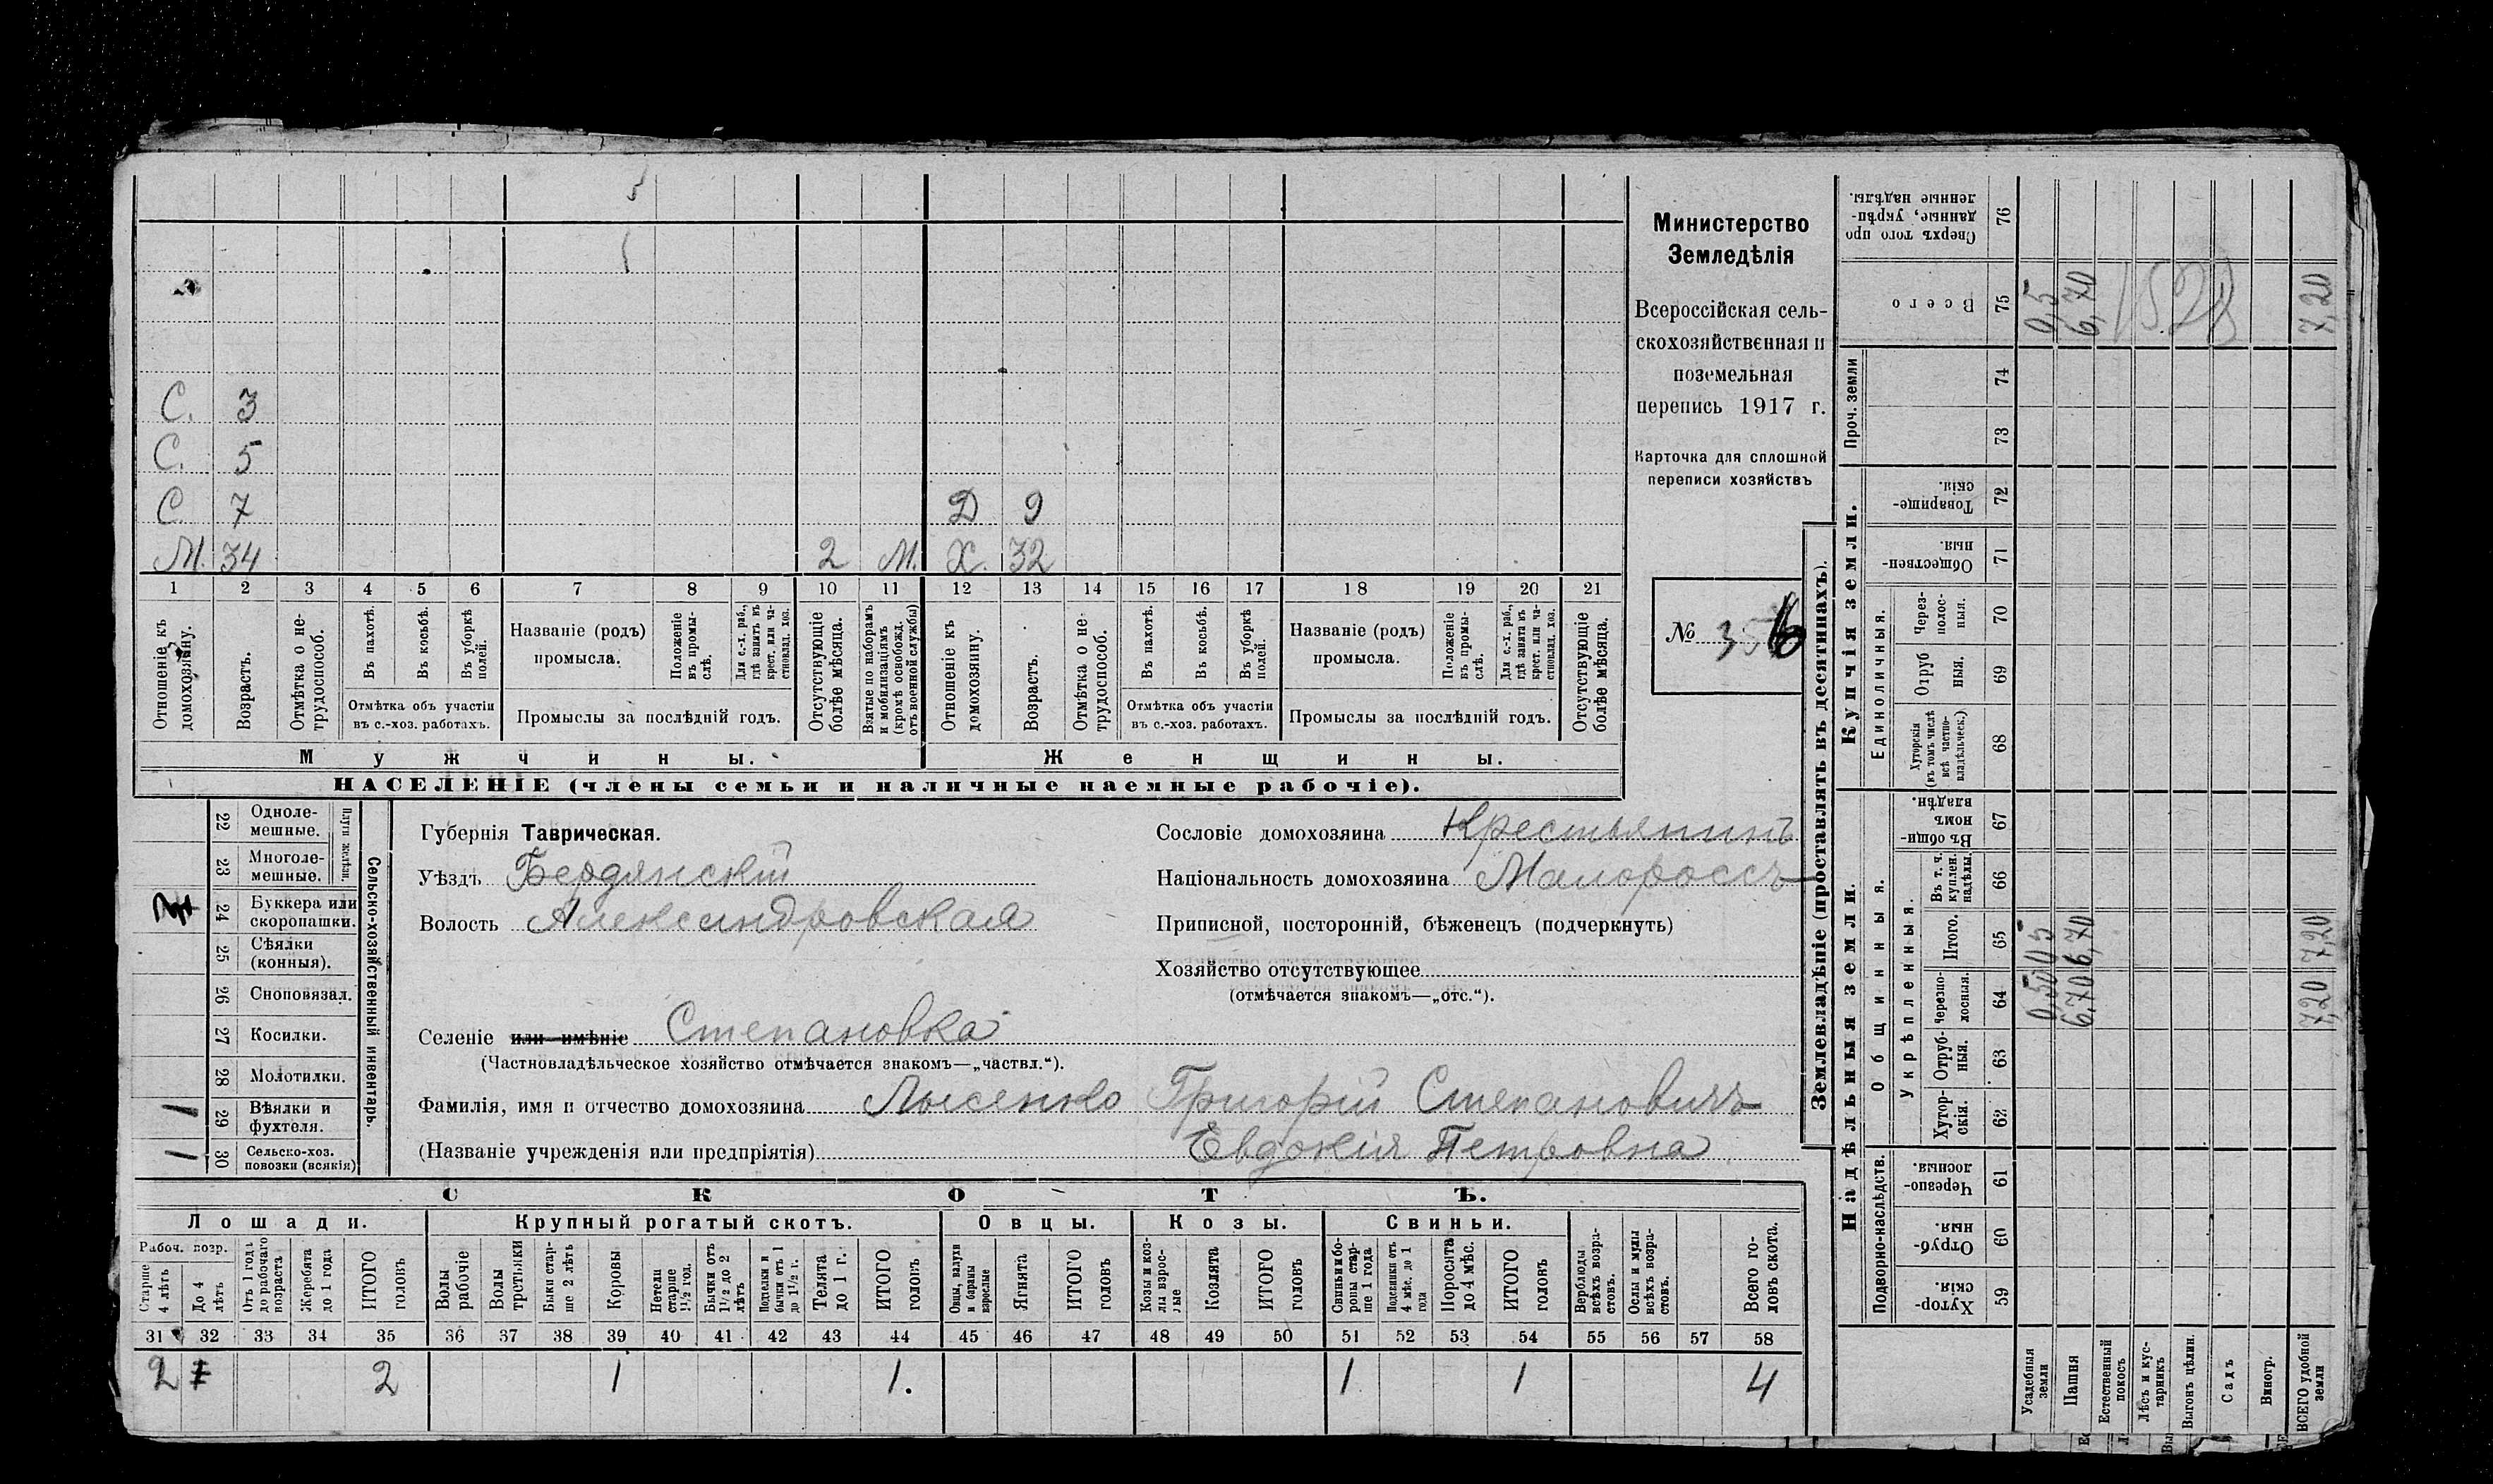 С. 3
С. 5
С 7 Д 9
М. 34 2 М. Х. 32
1 2 3 4 5 6 7 8 9 10 11 12 13 14 15 16 17 18 19 20 21
Отношеніе къ домохозяину.
Возрастъ.
Отмѣтка о нетрудоспособ.
Въ пахотѣ.
Въ косьбѣ.
Въ уборкѣ полей.
Отмѣтка объ участіи
въ с.-хоз. работахъ.
Названіе (родъ)
промысла.
Положеніе въ промыслѣ.
Для с.-х. раб., гдѣ занятъ въ крест. или частновлад. хоз.
Промыслы за послѣдній годъ.
Отсутствующіе болѣе мѣсяца.
Взятые по наборамъ и мобилизаціямъ (кромѣ освобожд. отъ военной службы)
Отношеніе къ домохозяину.
Возрастъ.
Отмѣтка о нетрудоспособ.
Въ пахотѣ.
Въ косьбѣ.
Въ уборкѣ полей.
Отмѣтка объ участіи
въ с.-хоз. работахъ.
Названіе (родъ)
промысла.
Положеніе въ промыслѣ.
Для с.-х. раб., гдѣ занята въ крест. или частновлад. хоз.
Промыслы за послѣдній годъ.
Отсутствующіе болѣе мѣсяца.
Мужчины. Женщины.
НАСЕЛЕНІЕ (члены семьи и наличные наемные рабочіе).
Министерство
Земледѣлія
Всероссійская сель-
скохозяйственная и
поземельная
перепись 1917 г.
Карточка для сплошной
переписи хозяйствъ
№
Сельско-хозяйственный инвентарь.
Плуги желѣзн.
22 Одноле-
мешные.
23 Многоле-
мешные.
24 Буккера или
скоропашки.
25 Сѣялки
(конныя).
26 Сноповязал.
27 Косилки.
28 Молотилки.
1 29 Вѣялки и
фухтеля.
1 30 Сельско-хоз.
повозки (всякія)
Губернія Таврическая.
Уѣздъ Бердянскій
Волость Александровская
Сословіе домохозяина Крестьянинъ
Національность домохозяина Малороссъ
Приписной, посторонній, бѣженецъ (подчеркнуть)
Хозяйство отсутствующее
(отмѣчается знакомъ—„отс.“).
Селеніе или имѣніе Степановка
(Частновладѣльческое хозяйство отмѣчается знакомъ—„частвл.“).
Фамилія, имя и отчество домохозяина Лысенко Григорій Степановичъ
(Названіе учрежденія или предпріятія) Евдокія Петровна
СКОТЪ.
Лошади. Крупный рогатый скотъ. Овцы. Козы. Свиньи.
Рабоч. возр.
Старше 4 лѣтъ
До 4 лѣтъ
Отъ 1 года до рабочаго возраста
Жеребята до 1 года
ИТОГО головъ
Волы рабочіе
Волы третьяки
Быки старше 2 лѣтъ
Коровы
Нетели старше 1½ год.
Бычки отъ 1½ до 2 лѣтъ
Подтелки и бычки отъ 1 до 1½ г.
Телята до 1 г.
ИТОГО головъ
Овцы, валухи и бараны взрослые
Ягнята
ИТОГО головъ
Козы и козлы взрослые
Козлята
ИТОГО головъ
Свиньи и боровы старше 1 года
Подсвинки отъ 4 мѣс. до 1 года
Поросята до 4 мѣс.
ИТОГО головъ
Верблюды всѣхъ возрастовъ.
Ослы и мулы всѣхъ возрастовъ.
Всего головъ скота.
31 32 33 34 35 36 37 38 39 40 41 42 43 44 45 46 47 48 49 50 51 52 53 54 55 56 57 58
2 2 1 1. 1 1 4
Землевладѣніе (проставлять въ десятинахъ).
Надѣльныя земли. Купчія земли. Проч. земли
Подворно-наслѣдств.
Общинныя.
Укрѣпленныя.
Единоличныя.
Хуторскія. 59
Отрубныя. 60
Черезполосныя. 61
Хуторскія. 62
Отрубныя. 63
Черезполосныя. 64
Итого. 65
Въ т. ч. куплен. надѣлы. 66
Въ общинномъ владѣн. 67
Хуторскія (въ томъ числѣ всѣ частновладѣльческ.) 68
Отрубныя. 69
Черезполосныя. 70
Общественныя. 71
Товарищескія. 72
73
74
Всего 75
Сверхъ того проданные, укрѣпленные надѣлы. 76
Усадебныя земли 0,50 0,5 0,5
Пашня 6,70 6,70 6,70
Естественный покосъ
Лѣсъ и кустарникъ
Выгонъ цѣлин.
Садъ
Виногр.
ВСЕГО удобной земли 7,20 7,20 7,20
1528